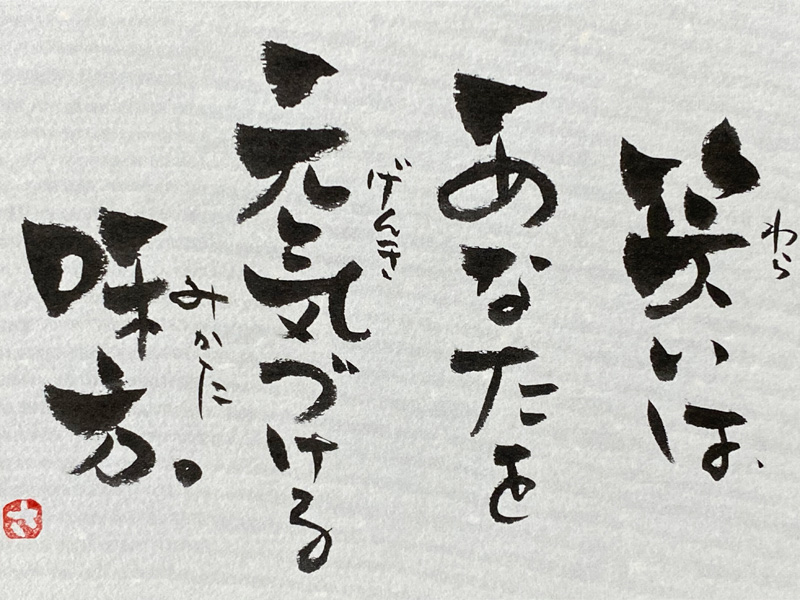 笑いは、
わら
あなたを
元気づける
げんき
味方。
みかた